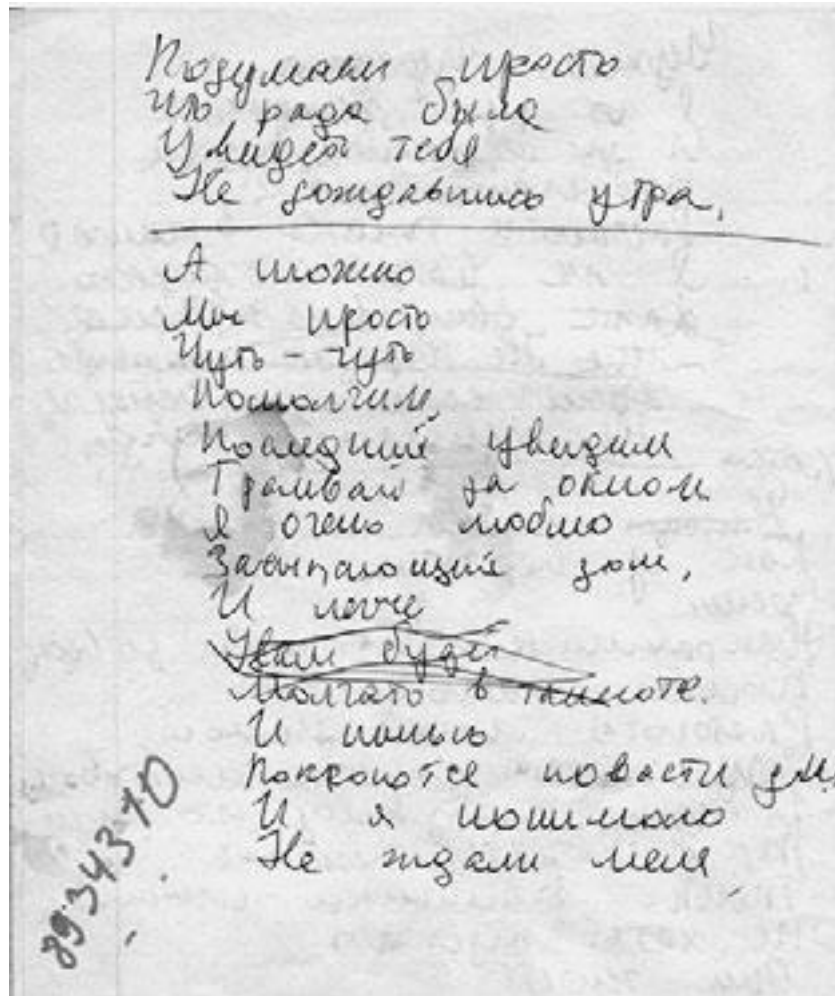 Подумаем просто
что рада была
Увидеть тебя
Не дождавшись утра,
А можно
Мы просто
Чуть-чуть
Помолчим,
Последний увидим
Трамвай за окном
Я очень люблю
Засыпающий дом,
И легче
Нам будет
Молчать в темноте.
И
Покроются новости
И я понимаю
Не ждали меня
8934370